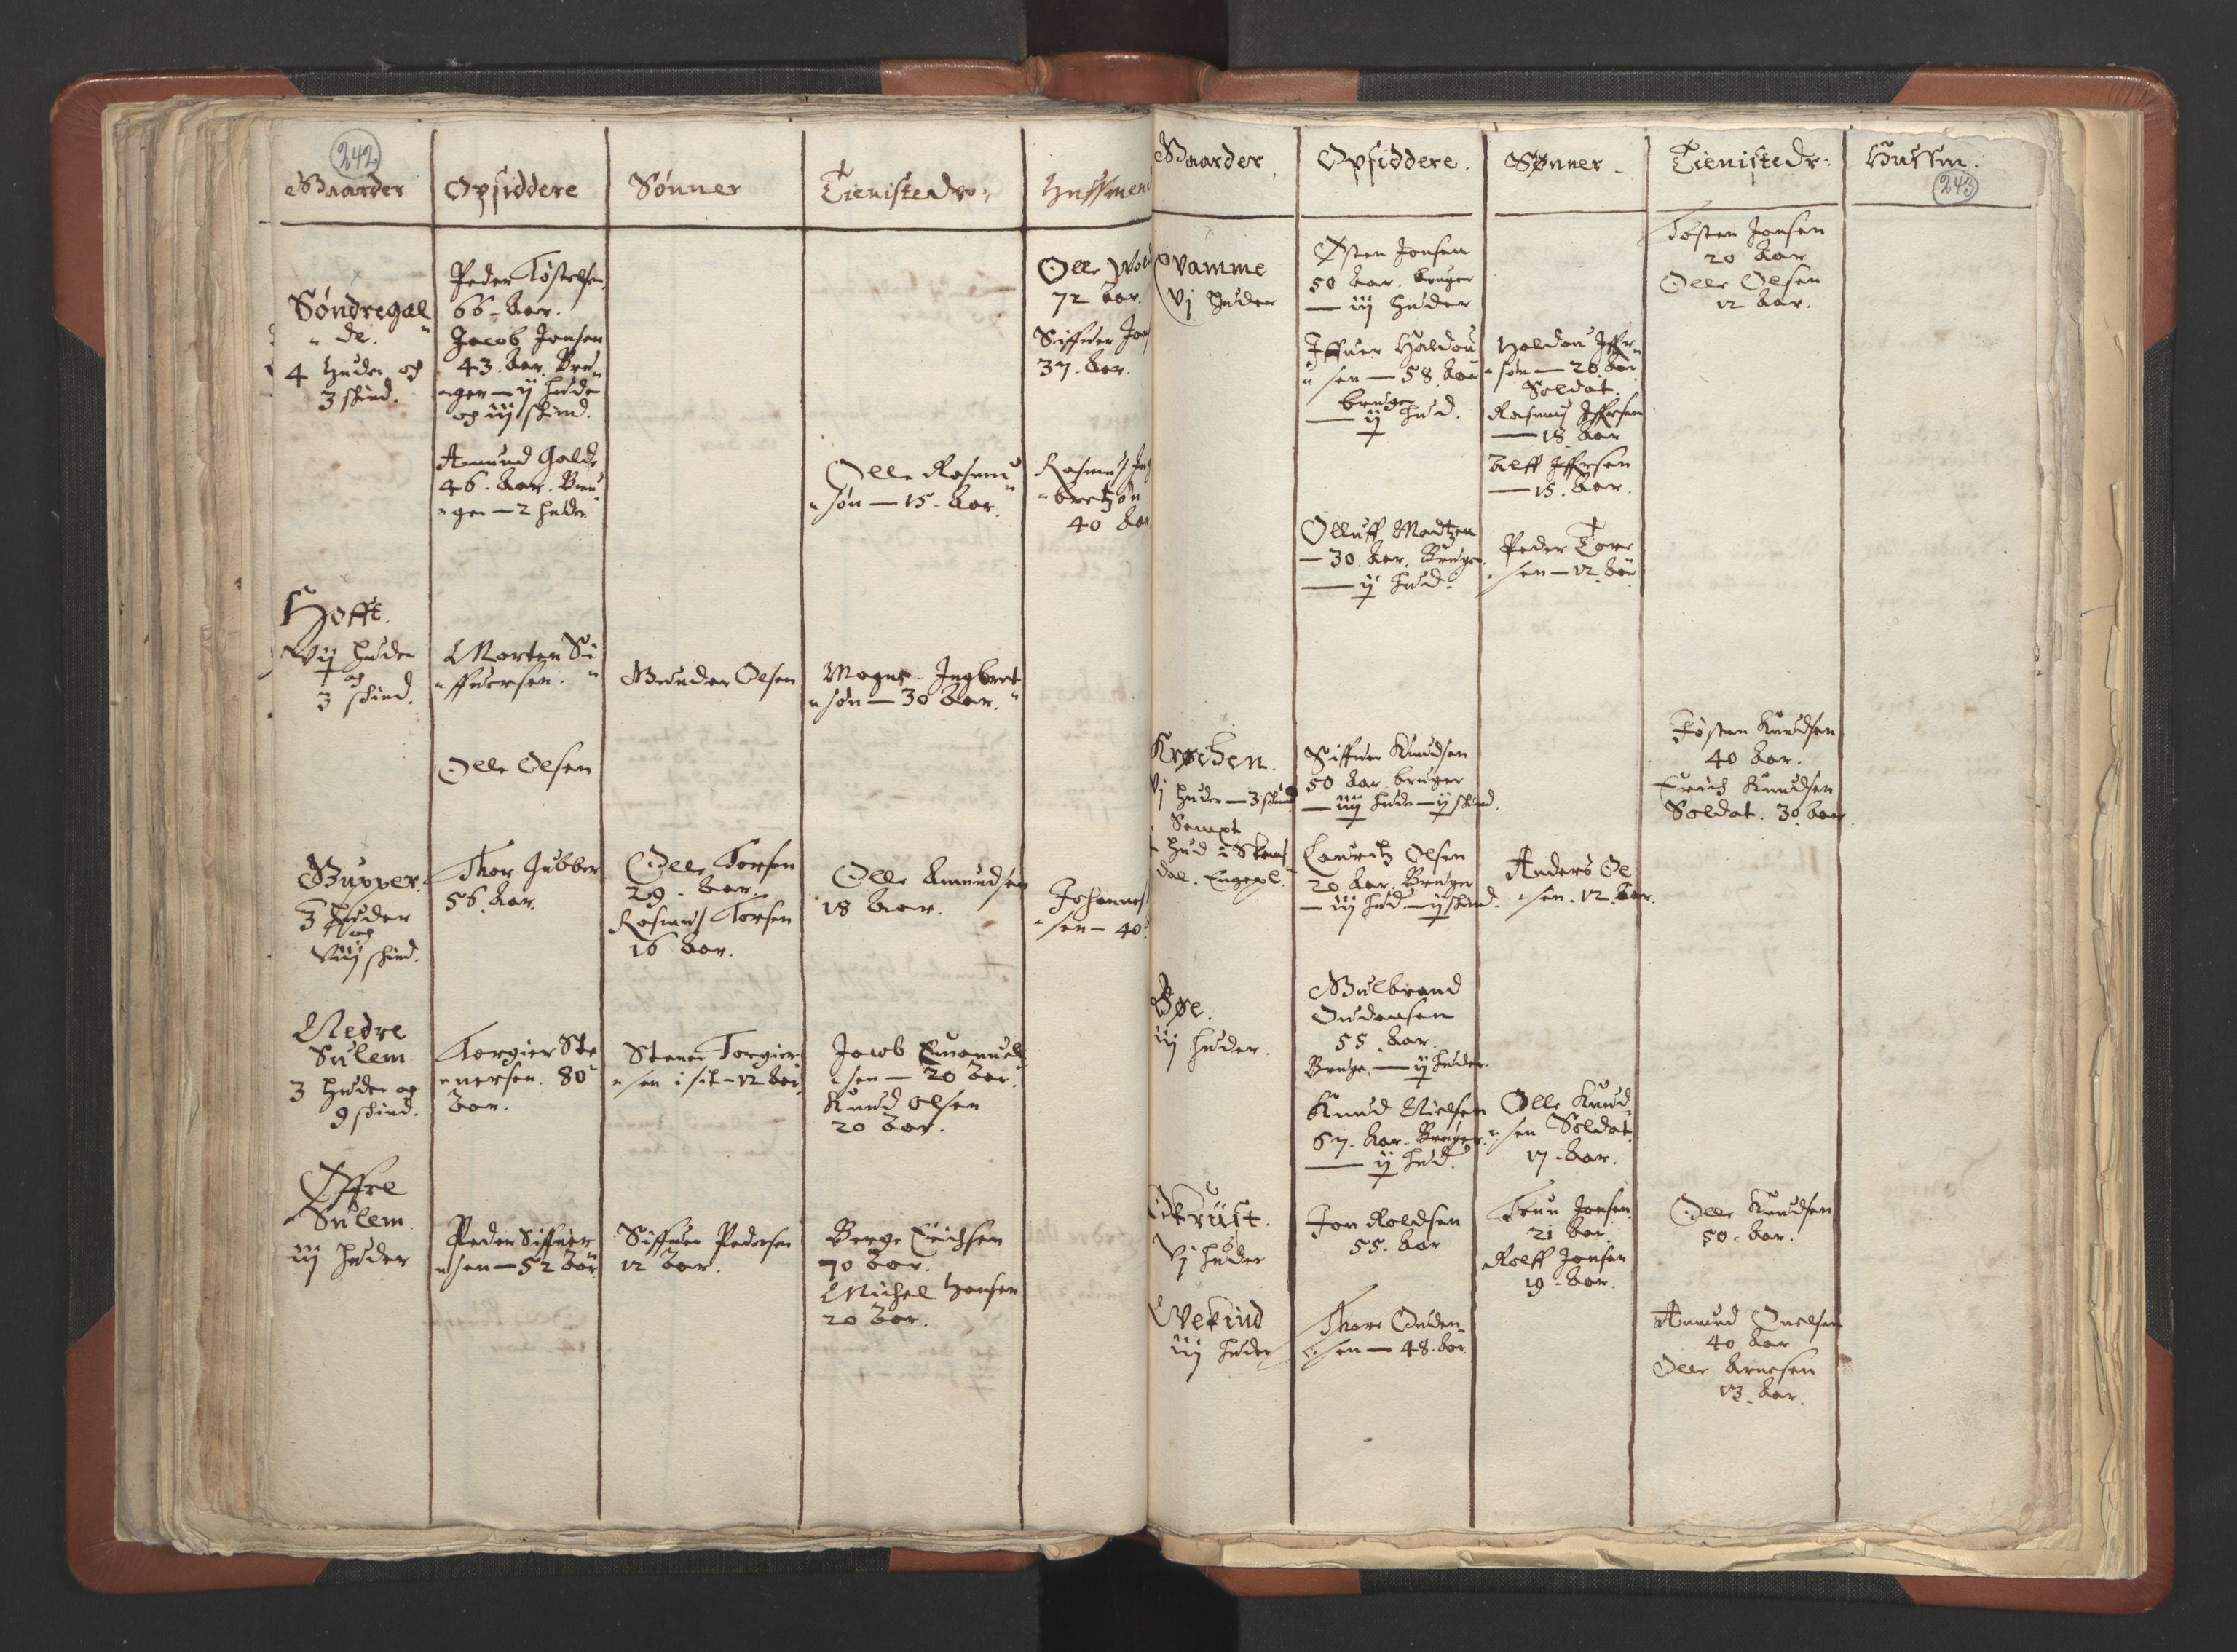 242
Gaarder Opsiddere Sønner Tienistedr: Hussmend
Peder Tostelsen
66 - Aar.
Søndregal
de.
4 Huder og
3 skind.
Jacob Jonsen
43. Aar. Bru
ger — ij hude
og iij skind.
Olle
72 Aar.
Siffuer
37. Aar.
Amund Galde
46. Aar. Bru
ger — 2 huder
Olle Rasmu
søn — 15 - Aar.
Rasmus
bretzøn
40 Aar
Hofft.
Vij huder
og
3 skind.
Morten Si
ffuersen.
Gunder Olsen
Magne Ingbret
søn — 30 Aar.
Olle Olsen
Gupper.
3 huder
og
Viij skind.
Thor Gubber
56. Aar.
Olle Torsen
29. Aar.
Rasmus Torsen
16 Aar.
Olle Amundsen
18 Aar.
Johannes
sen — 40
Nedre
Sulem
3 huder og
9 skind.
Torgier Ste
nersen. 80
Aar.
Stener Torgier
sen — 12 Aar
Jacob Emanuel
sen — 20 Aar.
Knud Olsen
20 Aar.
Øffre
Sulem
iij huder
Peder Siffuer
sen — 52 Aar
Siffuer Pedersen
12 Aar.
Berge Erichsen
70 Aar.
Michel Hansen
20 Aar.
Gaarder Opsiddere. Sønner. Tienistedr: Hussm.
243
Quamme
Vj huder
Østen Jonsen
50 Aar. bruger
— iij huder
Tosten Jonsen
20 Aar
Olle Olsen
12 Aar.
Iffuer Haldou
sen — 58 Aar
bruger
— ij hud.
Haldou Iffr
søn — 26 Aar
Soldat
Rasmus Iffrsen
— 18 Aar
Alff Iffrsen
— 15. Aar.
Olluff Madtzen
— 30. Aar. Bruger
— ij hud.
Peder Tore
sen — 12 Aar
Krøchen.
Vj huder — 3 skind
Sampt
hud i Skous
dal. Engepl.
Siffuer Knudsen
50 Aar. bruger
— iiij huder — ij skind.
Tosten Knudsen
40 Aar.
Erich Knudsen
Soldat. 30 Aar.
Lauritz Olsen
20 Aar. Bruger
— iij hud — ij skind.
Anders Ol
sen. 12. Aar.
Bøe.
iij huder.
Gulbrand
Oudensen
55. Aar.
Bruger — ij huder.
Knud Nielsen
67. Aar. Bruger.
— ij hud.
Olle Knud
sen Soldat.
17 - Aar.
Økrust.
Vj huder
Jon Roldsen
55. Aar
Trun Jonsen
21 Aar.
Rolff Jonsen
19 - Aar.
Olle Knudsen
50. Aar.
Qvekind
iij huder
Thore Ouden
sen — 48. Aar
Amund Onelsen
40 Aar
Olle Arnesen
13. Aar.